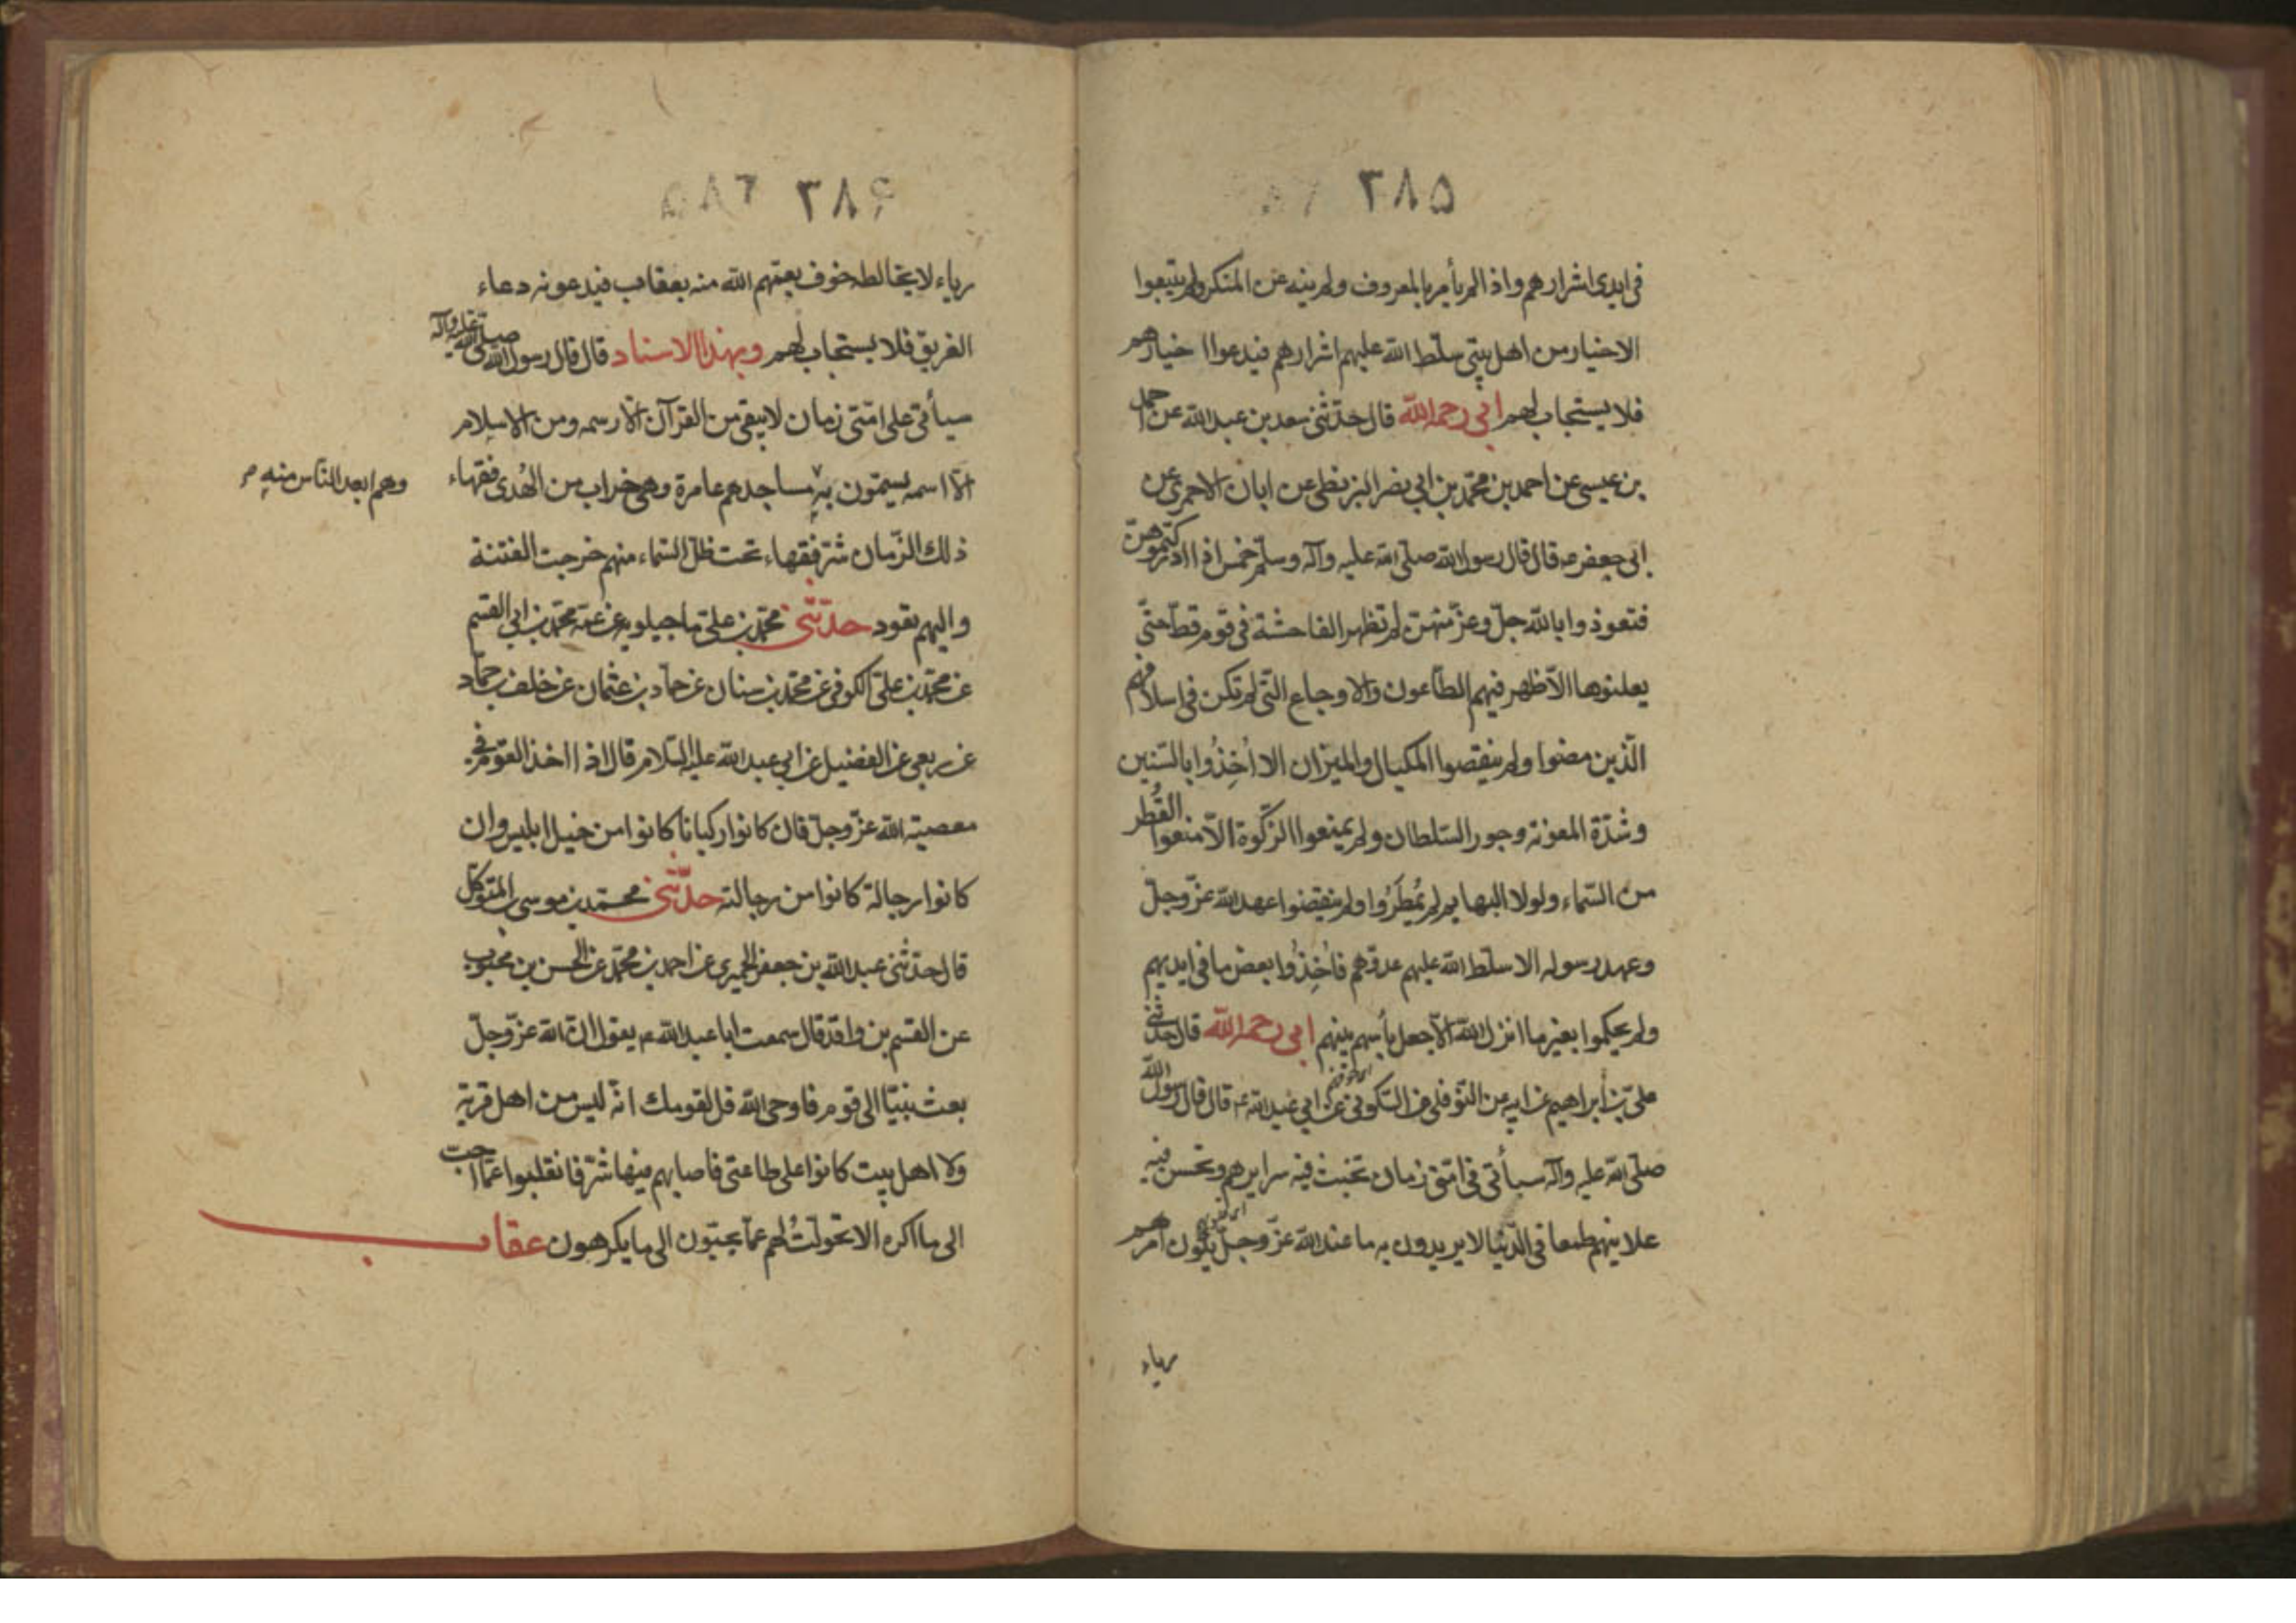 ٣٨۵
فى ايدى اشرارهم واذا لم يأمر بالمعروف ولم ينه عن المنكر ولم يتبعوا
الاخيار من اهل بيتى سلّط الله عليهم اشرارهم فيدعوا خيارهم
فلا يستجاب لهم ابى رحمه الله قال حدّثنى سعد بن عبد الله عن احمد
بن عيسى عن احمد بن محمّد بن ابى نصر البزنطى عن ابان الاحمرى عن
ابى جعفر ع قال قال رسول الله صلّى الله عليه وآله وسلّم خمس اذا ادركتموهنّ
فتعوذوا بالله جلّ وعزّ منهنّ لم تظهر الفاحشة فى قوم قطّ حتّى
يعلنوها الّا ظهر فيهم الطّاعون والاوجاع التّى لم تكن فى اسلافهم
الّذين مضوا ولم ينقصوا المكيال والميزان الا اُخِذُوا بالسّنين
وشدّة المعونة وجور السّلطان ولم يمنعوا الزّكوة الّا منعوا القُطر
من السّماء ولولا البهايم لم يُمطَرُوا ولم ينقضوا عهد الله عزّ وجلّ
وعهد رسوله الا سلّط الله عليهم عدوّهم فاُخِذُوا بعض ما فى ايديهم
ولم يحكموا بغير ما انزل الله الّا جعل بأسهم بينهم ابى رحمه الله قال حدّثنى
على بن ابراهيم عن ابيه عن النّوفلى عن السّكونى عن ابى عبد الله ع قال قال رسول الله
صلّى الله عليه وآله سيأتى فى امّتى زمان تخبث فيه سرايرهم وتحسن فيه
علانيتهم طمعا فى الدّنيا لا يريدون به ما عند الله عزّ وجلّ يكون امرهم
رياء
٣٨۶ ٢٨۵
رياء لا يخالطه خوف يعمّهم الله منه بعقاب فيدعونه دعاء
الغريق فلا يستجاب لهم وبهذا الاسناد قال قال رسول الله صلّى الله عليه وآله
سيأتى على امّتى زمان لا يبقى من القرآن الّا رسمه ومن الاسلام
الّا اسمه يسمّون به مساجدهم عامرة وهى خراب من الهُدى فقهاء
وهم ابعد النّاس منه م
ذلك الزّمان شرّ فقهاء تحت ظلّ السّماء منهم خرجت الفتنة
واليهم تعود حدّثنى محمّد بن على ماجيلويه عن عمّه محمّد بن ابى القسم
عن محمّد بن على الكوفى عن محمّد بن سنان عن حمّاد بن عثمان عن خلف بن حمّاد
عن ربعى عن الفضيل عن ابى عبد الله عليه السّلام قال اذا اخذ القوم فى
معصية الله عزّ وجلّ فان كانوا ركبانا كانوا من خيل ابليس وان
كانوا رجالة كانوا من رجالته حدّثنى محمّد بن موسى بن المتوكّل
قال حدّثنى عبد الله بن جعفر الحميرى عن احمد بن محمّد عن الحسن بن محبوب
عن القسم بن واقد قال سمعت ابا عبد الله ع يقول انّ الله عزّ وجلّ
بعث نبيّا الى قوم فاوحى الله قل لقومك انّه ليس من اهل قرية
ولا اهل بيت كانوا على طاعتى فاصابهم فيها شرّ فانقلبوا عمّا احبّ
الى ما اكره الا تحوّلتُ لهم عمّا يحبّون الى ما يكرهون عقاب